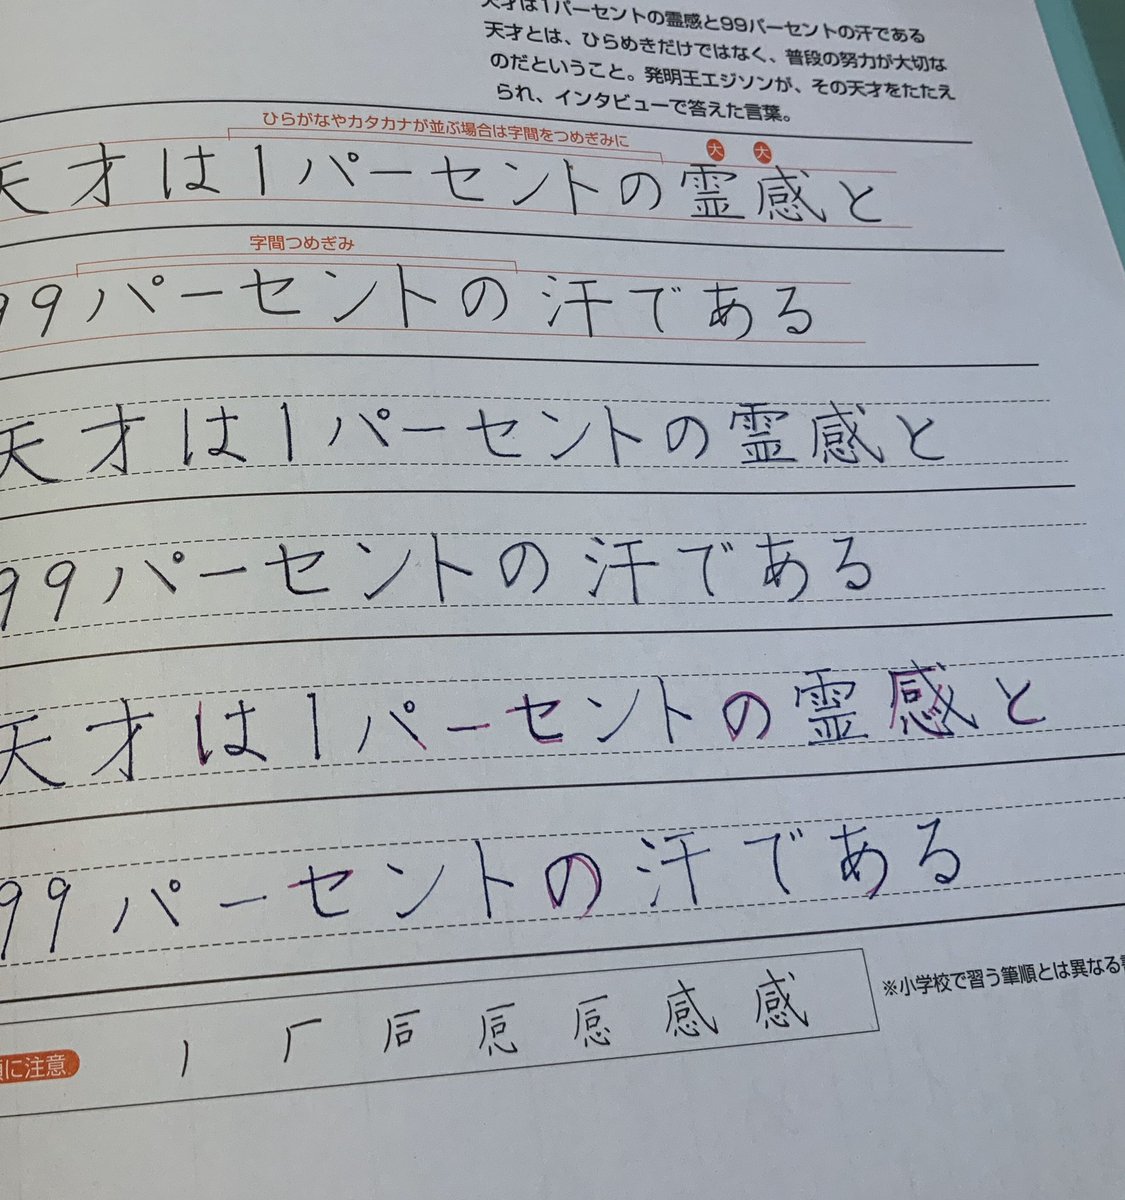 天才は1パーセントの霊感と99パーセントの汗である
天才とは、ひらめきだけではなく、普段の努力が大切な
のだということ。発明王エジソンが、その天才をたたえ
られ、インタビューで答えた言葉。
ひらがなやカタカナが並ぶ場合は字間をつめぎみに
大 大
天才は1パーセントの霊感と
字間つめぎみ
99パーセントの汗である
天才は1パーセントの霊感と
99パーセントの汗である
天才は1パーセントの霊感と
99パーセントの汗である
※小学校で習う筆順とは異なる
に注意 感 感